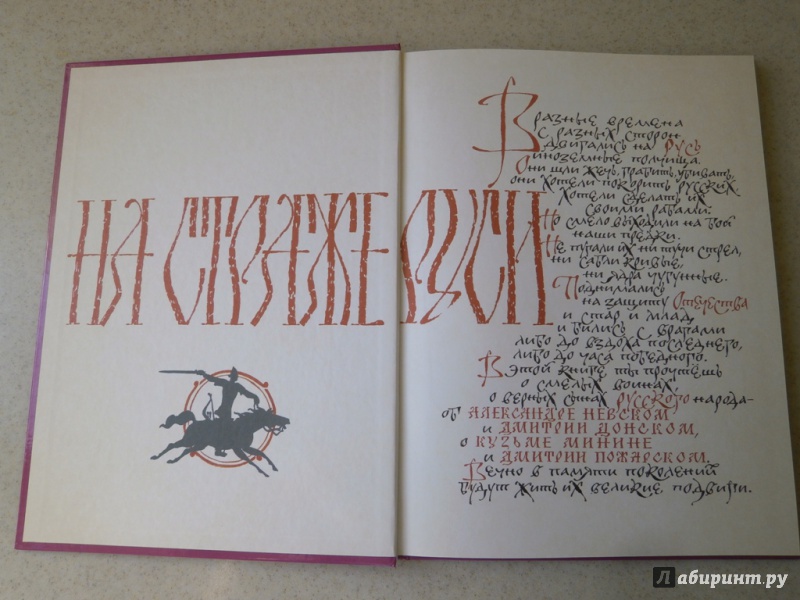 НА СТРАЖЕ РУСИ
В разные времена
с разных сторон
двигались на Русь
иноземные полчища.
Они шли жечь, грабить, убивать,
они хотели покорить русских,
хотели сделать их
своими рабами.
Но смело выходили на бой
наши предки.
Не пугали их ни тучи стрел,
ни сабли кривые,
ни ядра чугунные.
Поднимались
на защиту Отечества
и стар и млад
и бились с врагами
либо до вздоха последнего,
либо до часа победного.
В этой книге ты прочтешь
о смелых воинах,
о верных сынах русского народа-
об АЛЕКСАНДРЕ НЕВСКОМ
и ДМИТРИИ ДОНСКОМ,
о КУЗЬМЕ МИНИНЕ
и ДМИТРИИ ПОЖАРСКОМ.
Вечно в памяти поколений
будут жить их великие подвиги.
Лабиринт.ру